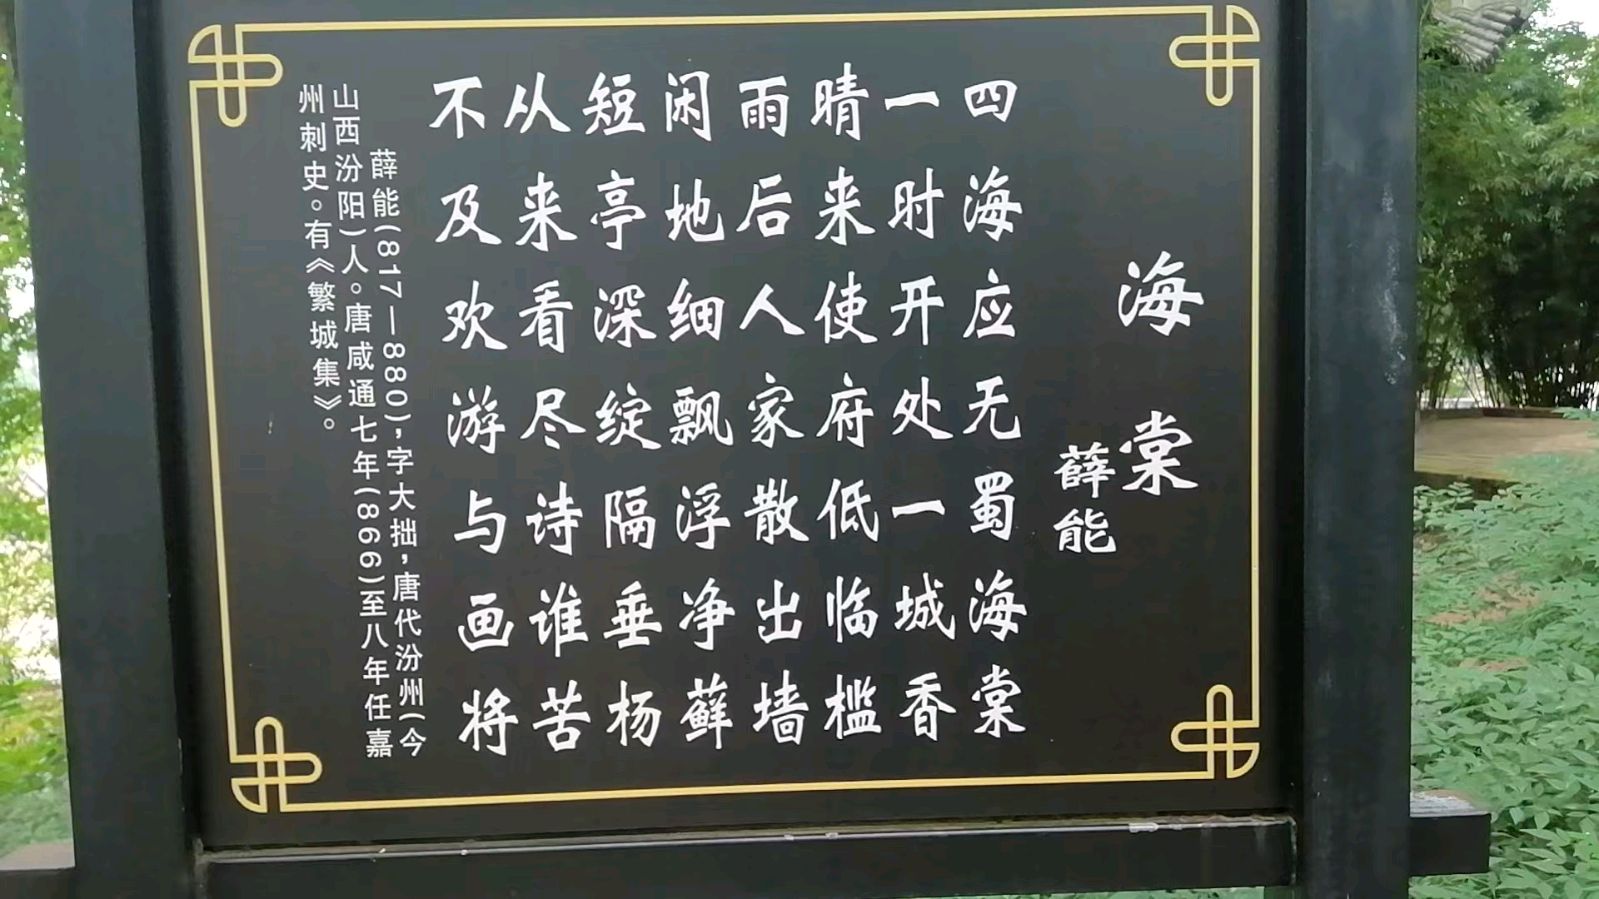 海棠
薛能
四海应无蜀海棠
一时开处一城香
晴来使府低临槛
雨后人家散出墙
闲地细飘浮净藓
短亭深绽隔垂杨
从来看尽诗谁苦
不及欢游与画将
薛能(817—880)，字大拙，唐代汾州(今
山西汾阳)人。唐咸通七年(866)至八年任嘉
州刺史。有《繁城集》。